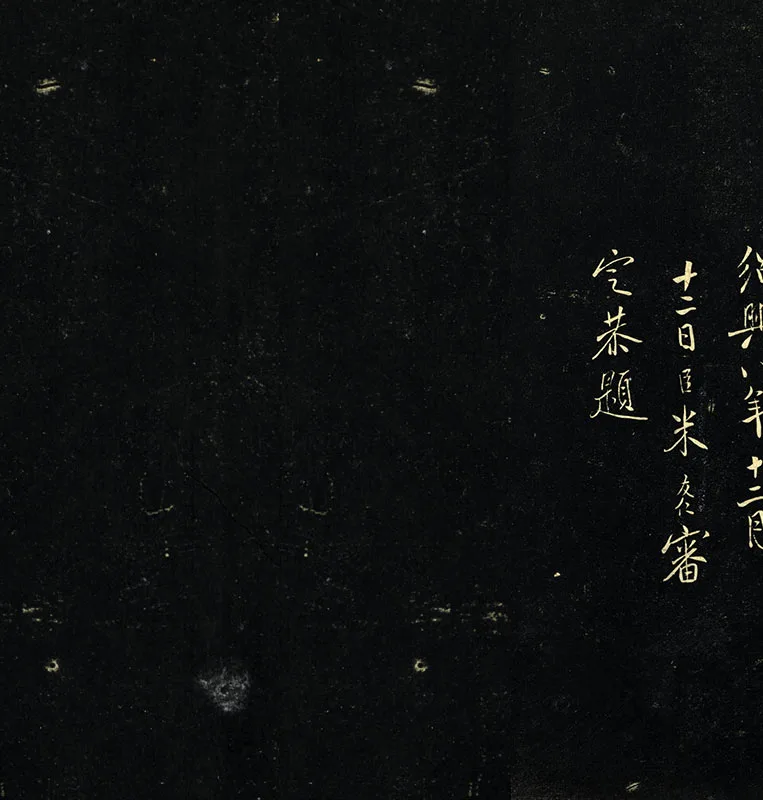 紹興八年十二月
十二日臣米友仁審
定恭題